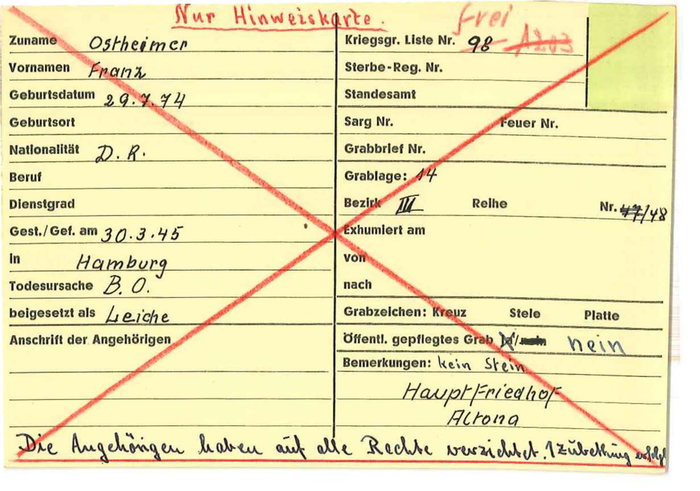 Nur Hinweiskarte.
frei
Zuname Ostheimer
Vornamen Franz
Geburtsdatum 29.7.74
Geburtsort
Nationalität D.R.
Beruf
Dienstgrad
Gest./Gef. am 30.3.45
in Hamburg
Todesursache B.O.
beigesetzt als Leiche
Anschrift der Angehörigen
Kriegsgr. Liste Nr. 98 1203
Sterbe-Reg. Nr.
Standesamt
Sarg Nr. Feuer Nr.
Grabbrief Nr.
Grablage: 14
Bezirk III Reihe Nr. 47/48
Exhumiert am
von
nach
Grabzeichen: Kreuz Stele Platte
Öffentl. gepflegtes Grab ja/nein nein
Bemerkungen: kein Stein
Hauptfriedhof
Altona
Die Angehörigen haben auf alle Rechte verzichtet. 1 Zubettung erfolgt